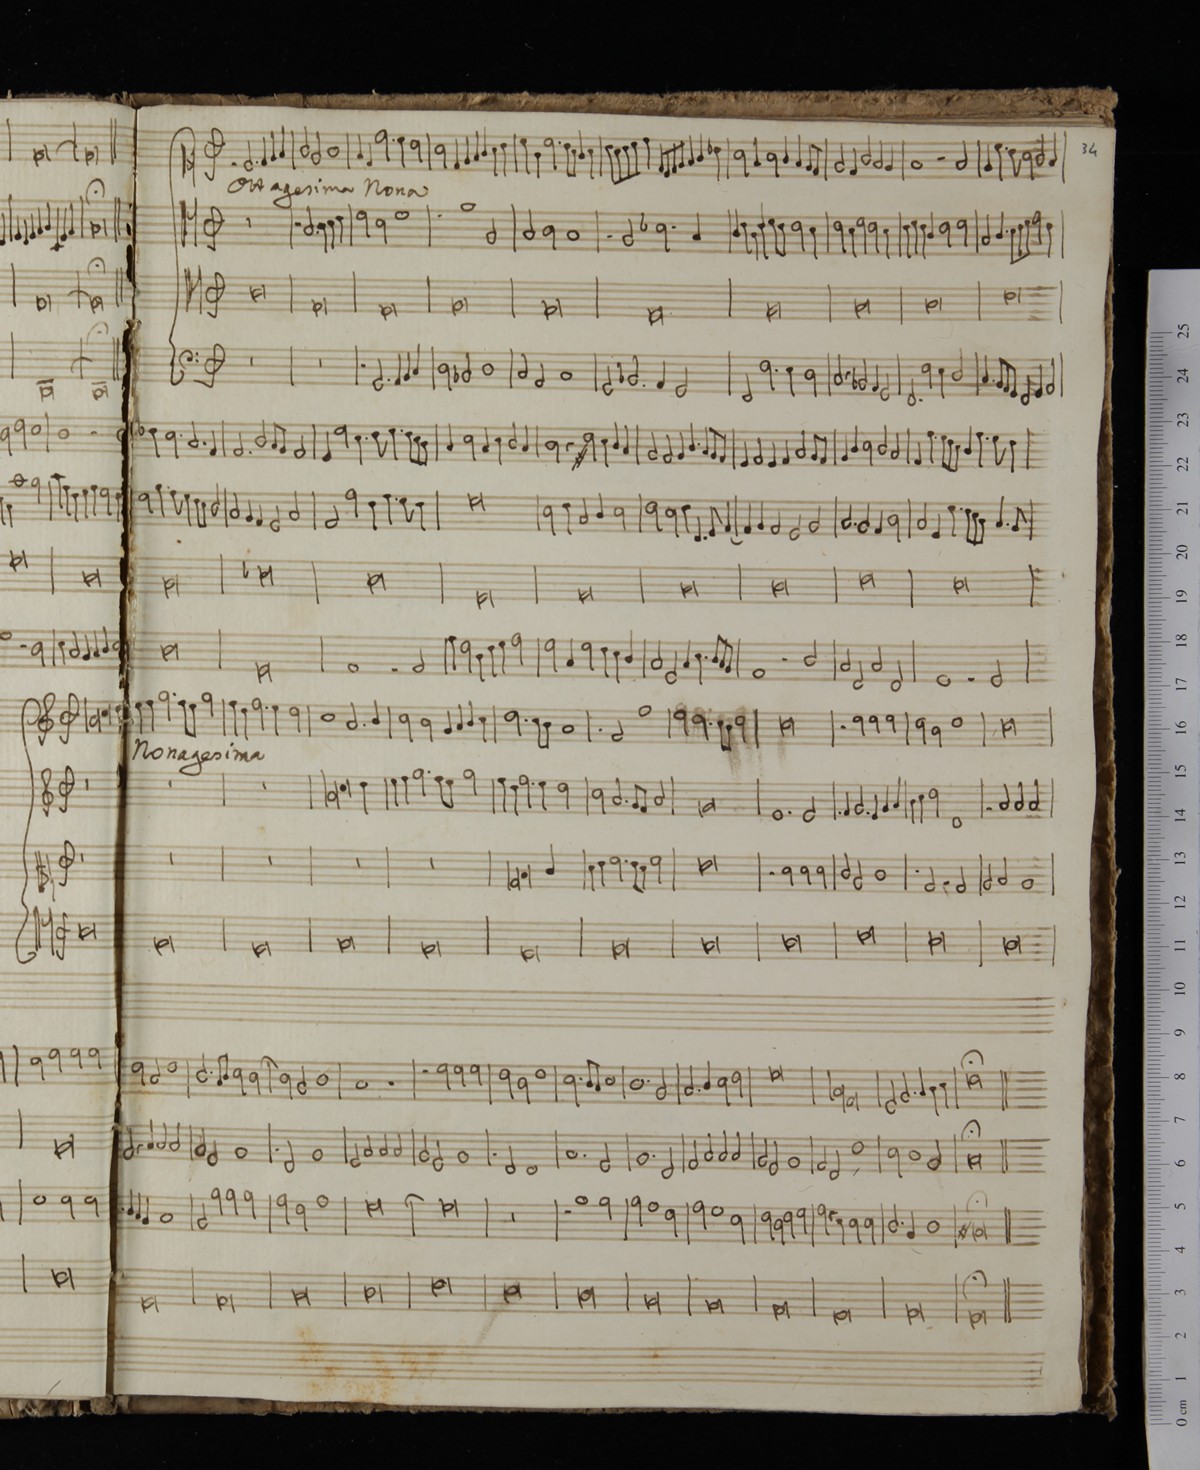 34
Ottagesima Nona
Nonagesima
25
24
23
22
21
20
19
18
17
16
15
14
13
12
11
10
9
8
7
6
5
4
3
2
1
0 cm